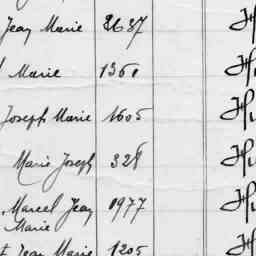 Jean Marie 2637
Marie 1361
Joseph Marie 1605
Marie Joseph 328
Marcel Jean 1977
Marie
Jean Marie 1205